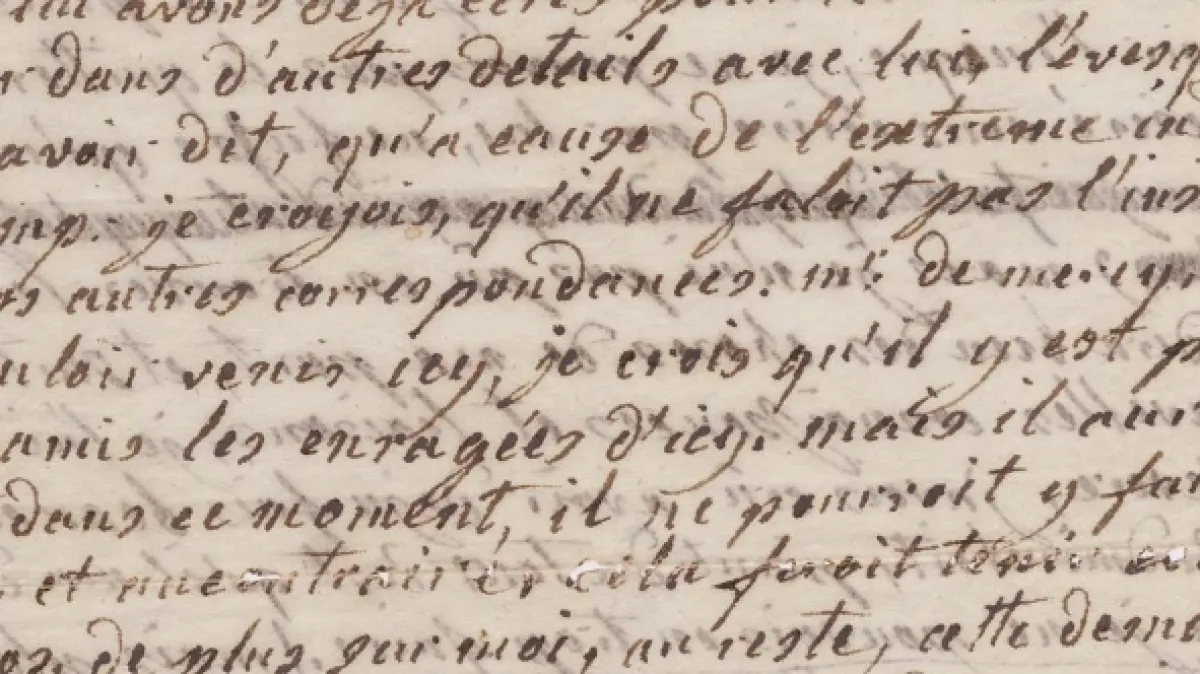 lui avons deja
r dans d'autres details avec lui, l'evesq
avoir dit, qu'a cause de l'extreme ind
mp. je croyois, qu'il ne faloit pas l'ins
os autres correspondances. mr: de mercy,
uloir venir icy, je crois qu'il y est p
amis les enragées d'icy. mais il aur
dans ce moment, il ne pourroit y fai
et aucontraire, cela feroit tenir
os, de plus sur moi, au reste, cette dema